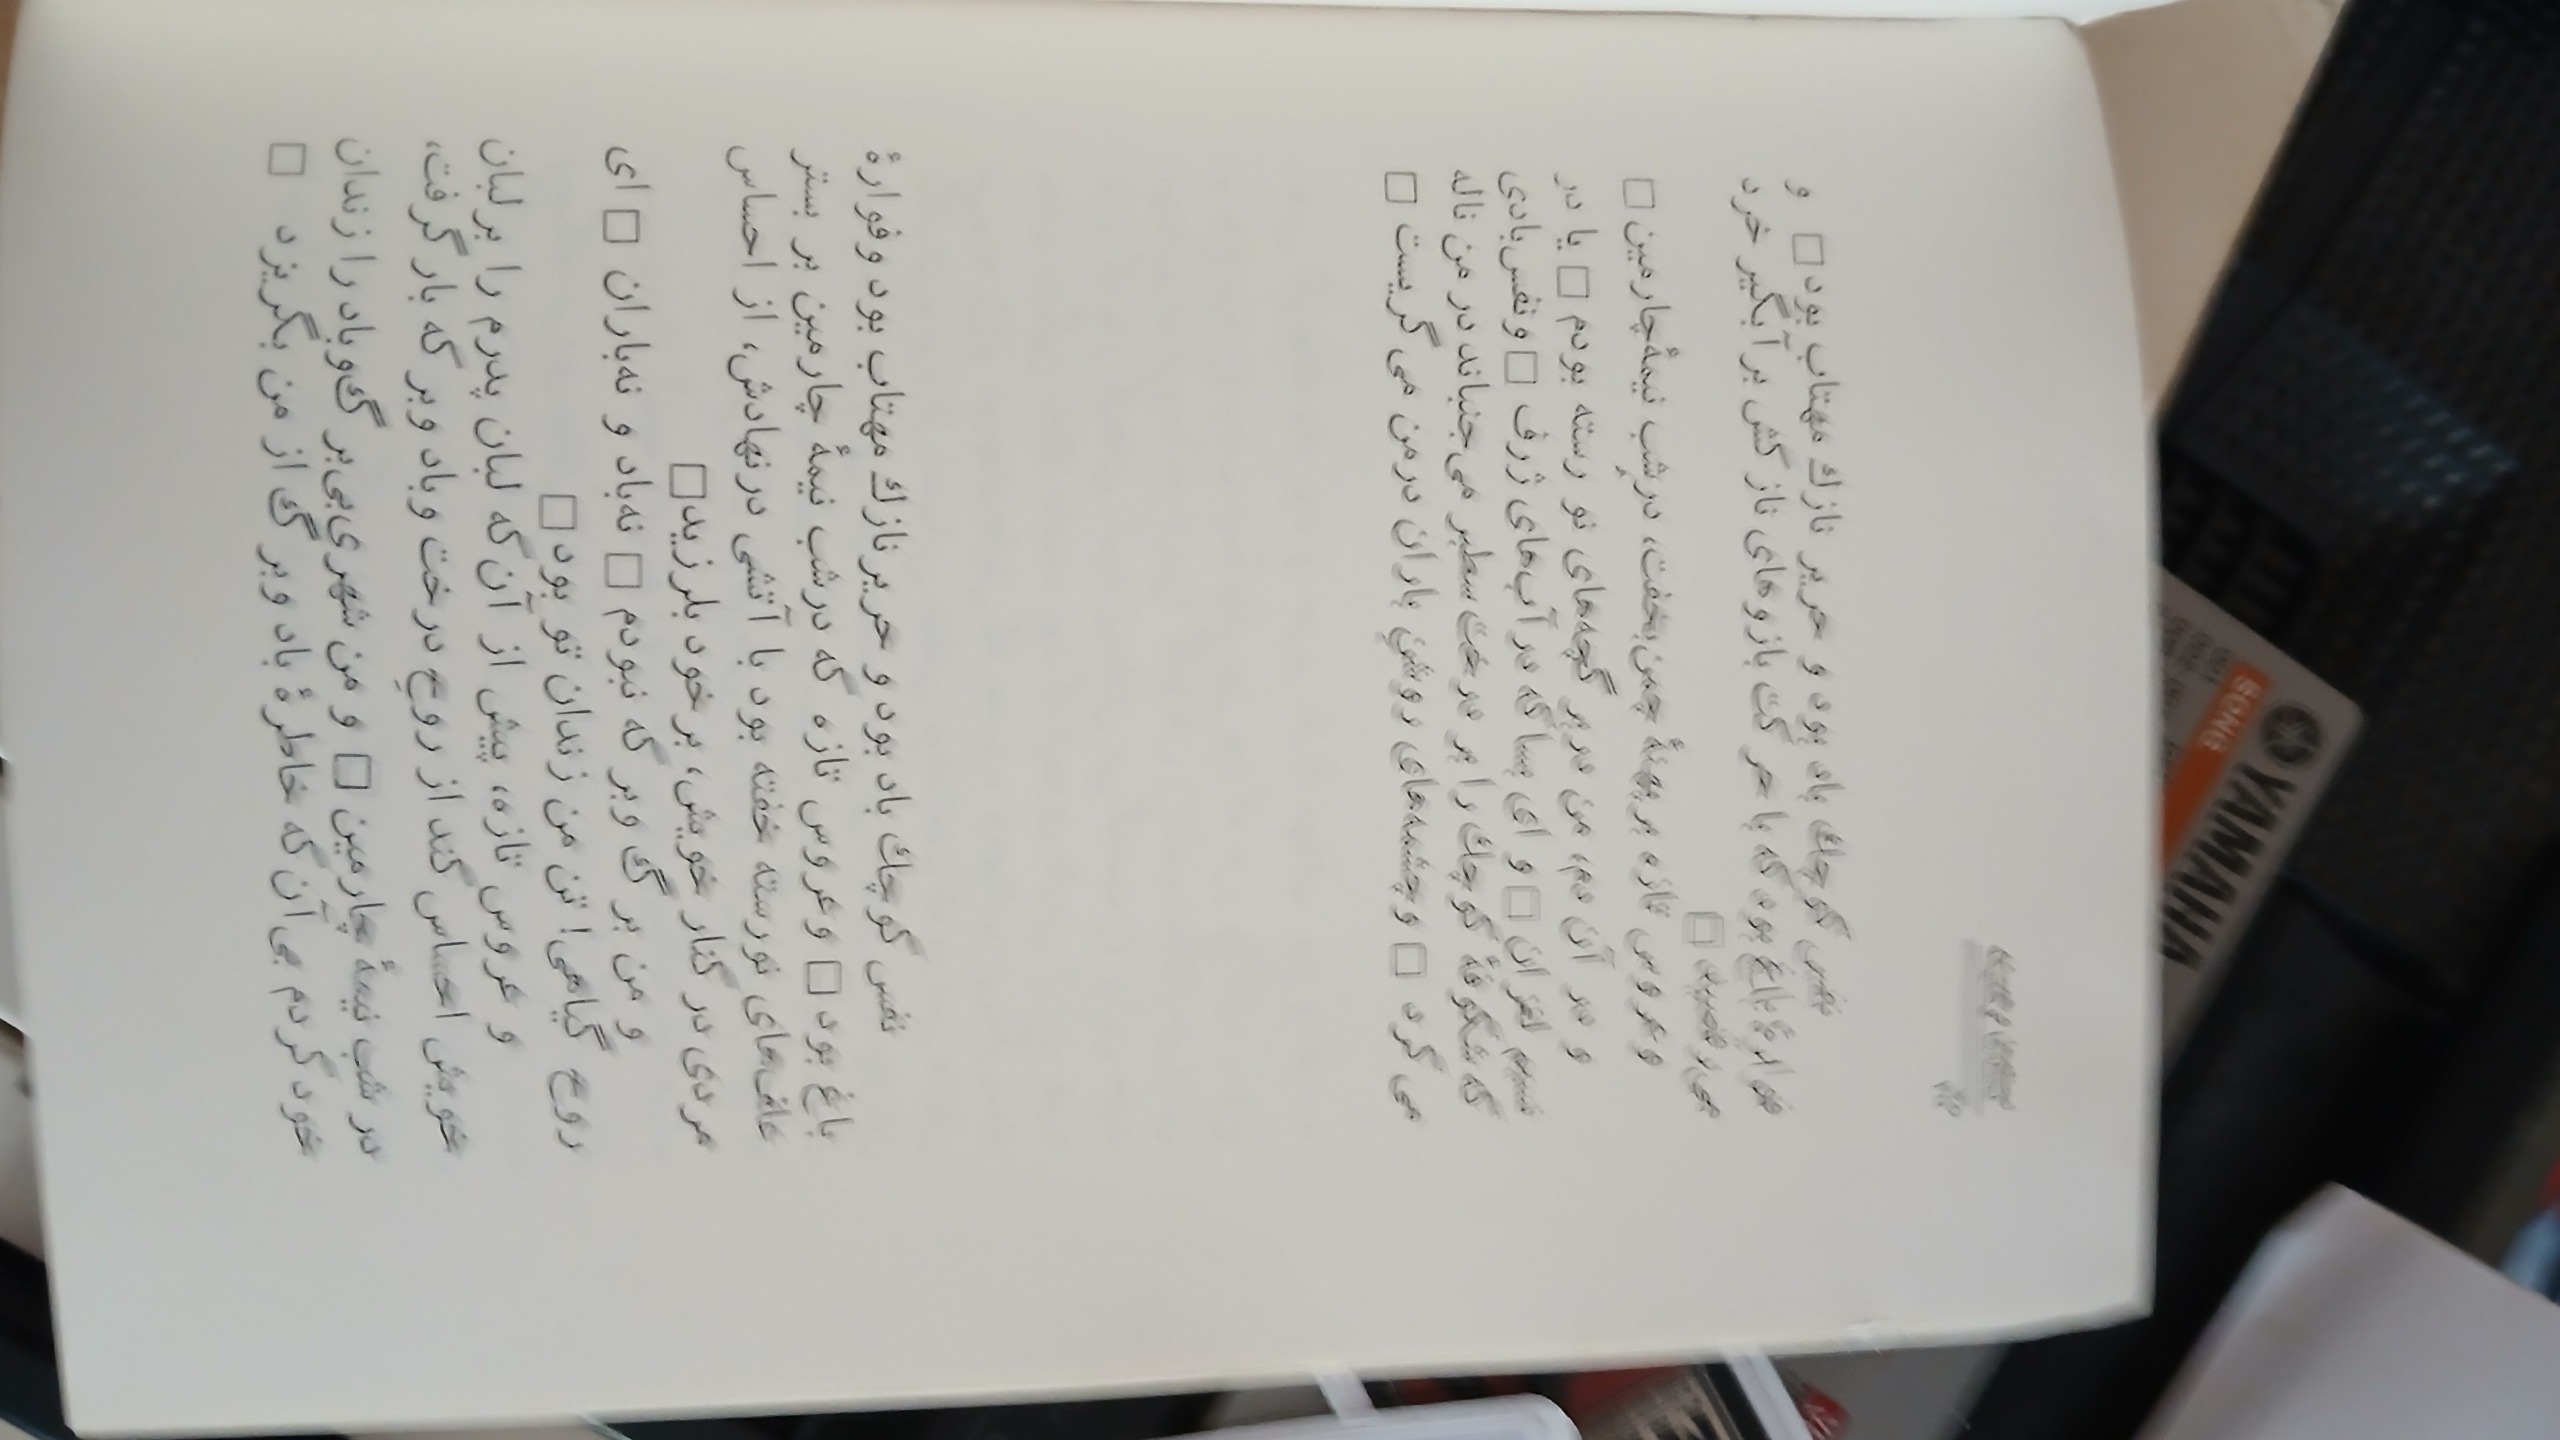 نفس کوچك باد بود و حریر نازك مهتاب بود□ و
فوارهٔ باغ بود که با حرکت بازوهای نازکش بر آبگیر خرد
می‌رقصید□
و عروس تازه بر پهنهٔ چمن بخفت، در شب نیمهٔ چارمین□
و در آن دم، من در برگچه‌های نو رسته بودم□ یا در
نسیم لغزان□ و ای بسا که در آب‌های ژرف□ و نفس بادی
که شکوفهٔ کوچك را بر درخت سطبر می‌جنباند در من ناله
می‌کرد□ و چشمه‌های روشنِ باران در من می‌گریست□
نفس کوچك باد بود و حریر نازك مهتاب بود و فوارهٔ
باغ بود□ و عروس تازه که در شب نیمهٔ چارمین بر بستر
علف‌های نورسته خفته بود با آتشی در نهادش، از احساس
مردی در کنار خویش، بر خود بلرزید□
و من برگ و بر که نبودم□ نه باد و نه باران□ ای
روح گیاهی! تن من زندان تو بود□
و عروس تازه، پیش از آن که لبان پدرم را بر لبان
خویش احساس کند از روحِ درخت و باد و بر که بار گرفت،
در شب نیمهٔ چارمین□ و من شهری بی‌برگ و باد را زندان
خود کردم بی آن که خاطرهٔ باد و برگ از من بگریزد□
YAMAHA
SONG